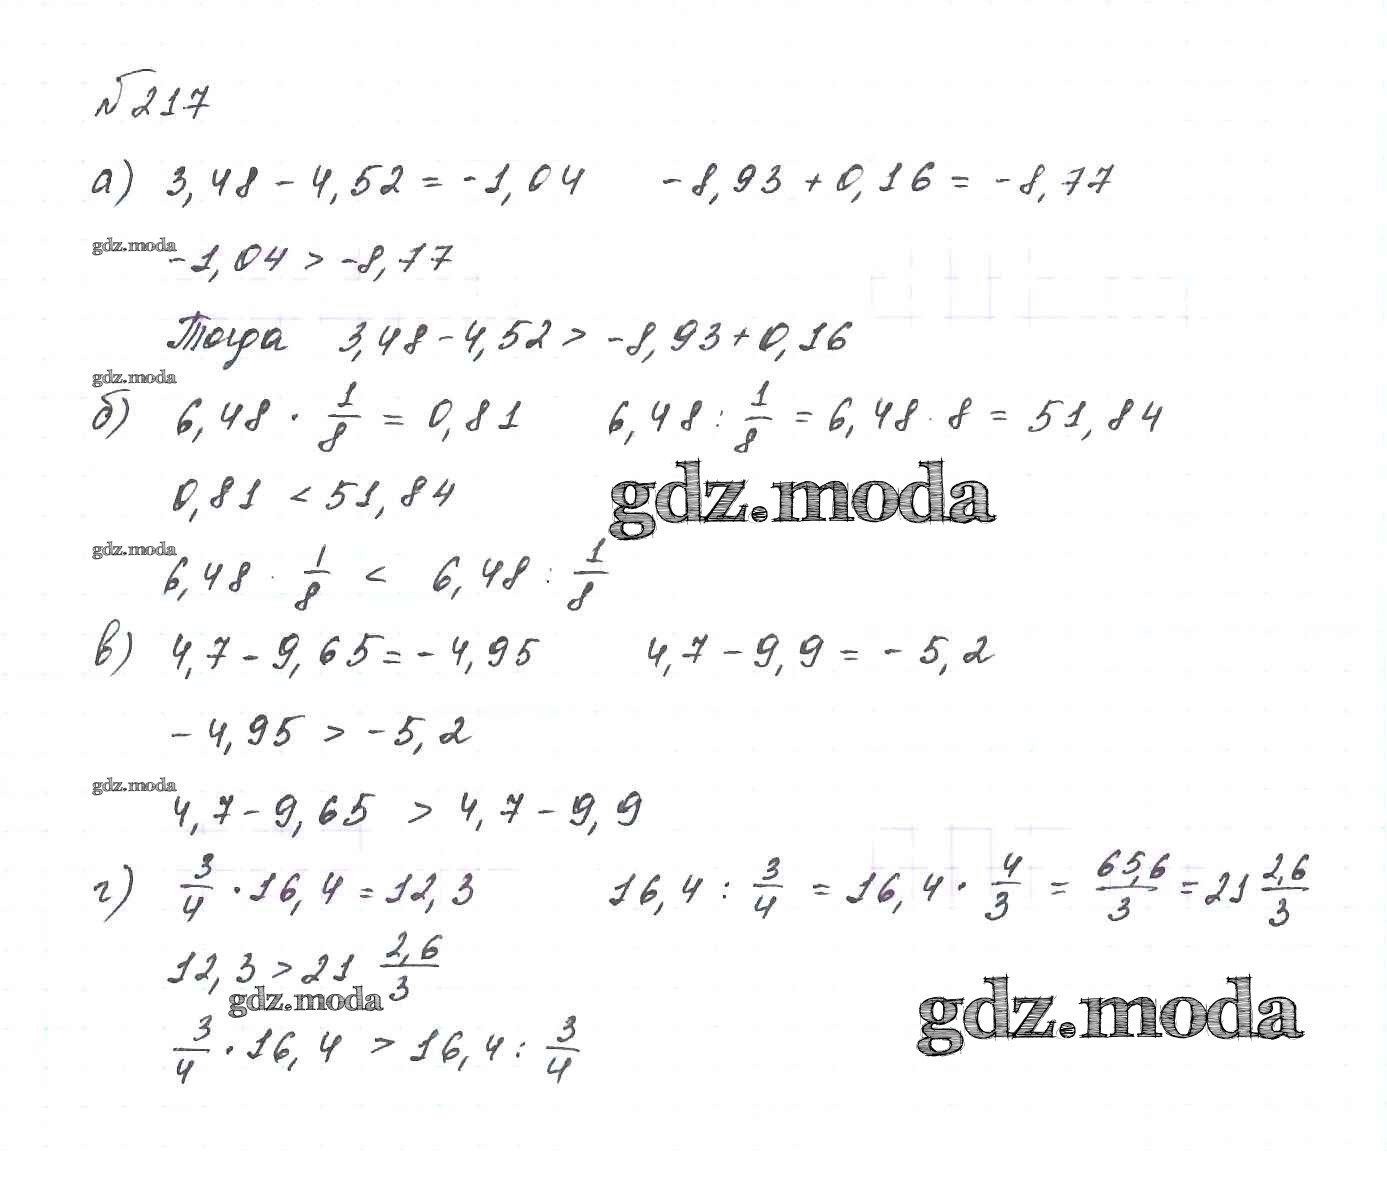 №217
а) 3,48 - 4,52 = -1,04 -8,93 + 0,16 = -8,77
gdz.moda
-1,04 > -8,77
Тогда 3,48 - 4,52 > -8,93 + 0,16
gdz.moda
б) 6,48 · 1/8 = 0,81 6,48 : 1/8 = 6,48 · 8 = 51,84
0,81 < 51,84
gdz.moda
gdz.moda
6,48 · 1/8 < 6,48 : 1/8
в) 4,7 - 9,65 = -4,95 4,7 - 9,9 = -5,2
-4,95 > -5,2
gdz.moda
4,7 - 9,65 > 4,7 - 9,9
г) 3/4 · 16,4 = 12,3 16,4 : 3/4 = 16,4 · 4/3 = 65,6/3 = 21 2,6/3
12,3 > 21 2,6/3
gdz.moda
gdz.moda
3/4 · 16,4 > 16,4 : 3/4